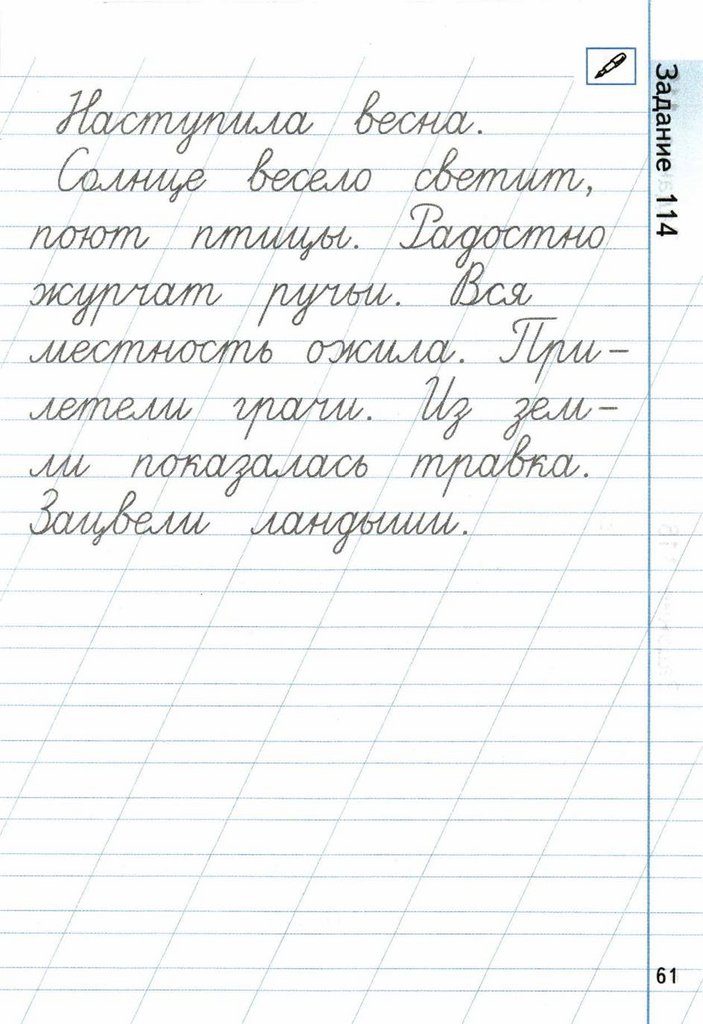 Задание 114
Наступила весна.
Солнце весело светит,
поют птицы. Радостно
журчат ручьи. Вся
местность ожила. При-
летели грачи. Из зем-
ли показалась травка.
Зацвели ландыши.
61